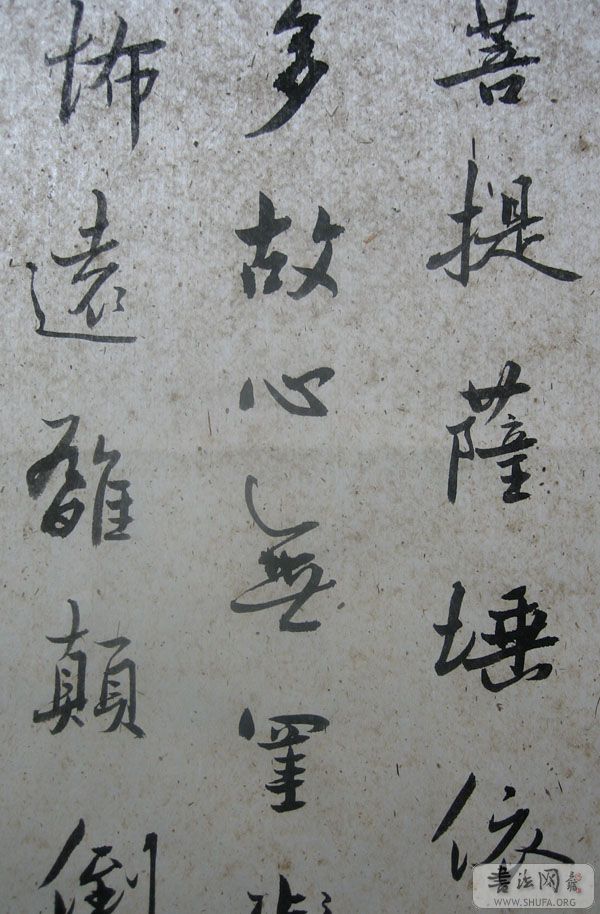 菩提薩埵依
多故心無罣礙
怖遠離顛倒
書法网
WWW.SHUFA.ORG